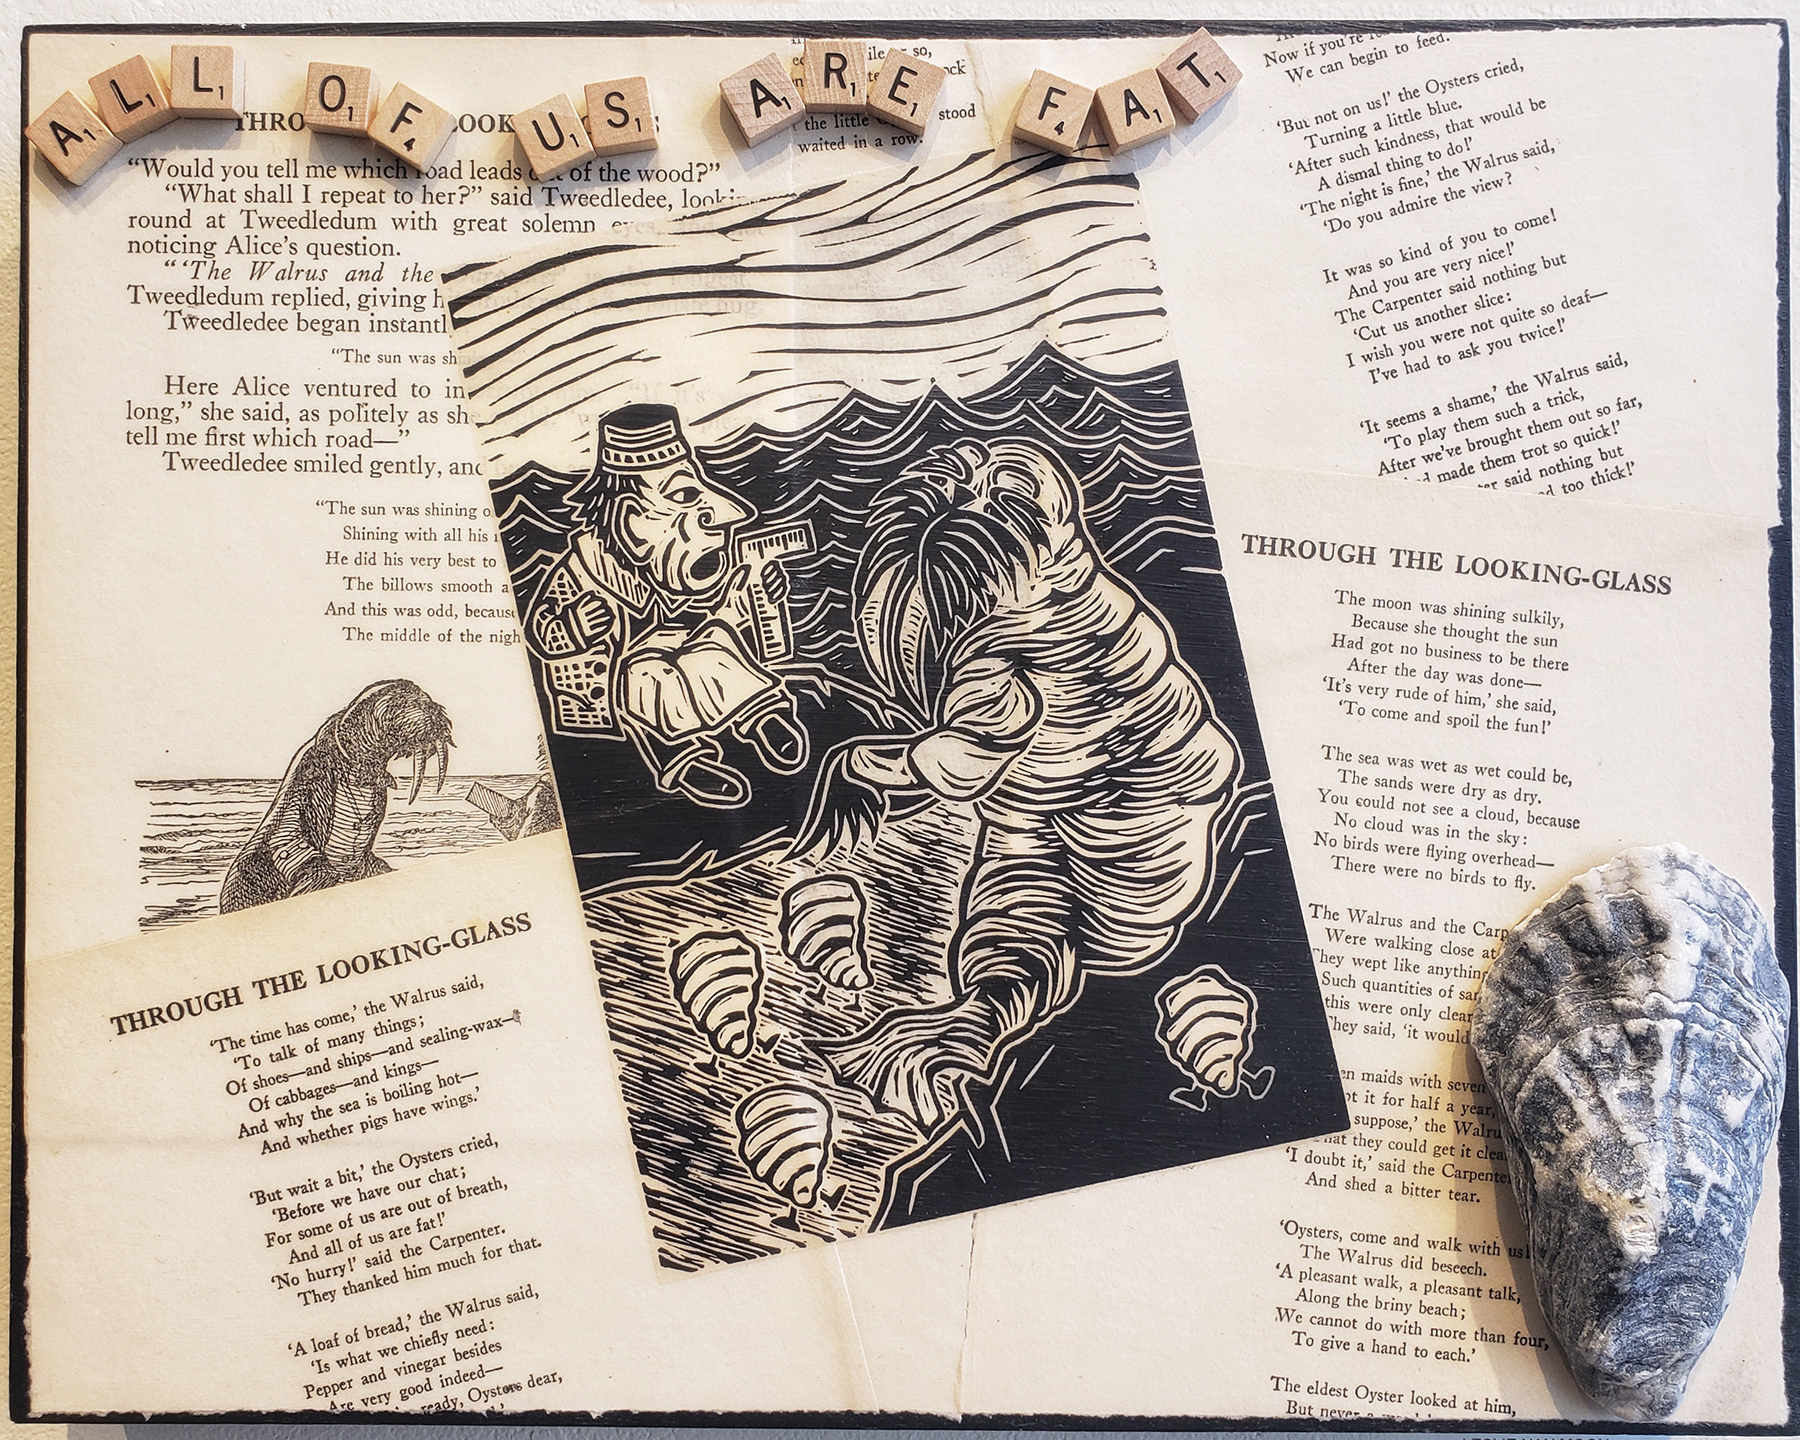 ALL OF US ARE FAT
“Would you tell me which road leads of the wood?”
“What shall I repeat to her?” said Tweedledee,
round at Tweedledum with great solemn eyes,
noticing Alice’s question.
“‘The Walrus and the
Tweedledum replied, giving
Tweedledee began
“The sun was
Here Alice ventured to
long,” she said, as politely as she
tell me first which road—”
Tweedledee smiled gently, and
“The sun was shining
Shining with all his
He did his very best to
The billows smooth
And this was odd,
The middle of the
THROUGH THE LOOKING-GLASS
‘The time has come,’ the Walrus said,
‘To talk of many things;
Of shoes—and ships—and sealing-wax—
Of cabbages—and kings—
And why the sea is boiling hot—
And whether pigs have wings.’
‘But wait a bit,’ the Oysters cried,
‘Before we have our chat;
For some of us are out of breath,
And all of us are fat!’
‘No hurry!’ said the Carpenter.
They thanked him much for that.
‘A loaf of bread,’ the Walrus said,
‘Is what we chiefly need:
Pepper and vinegar besides
Are very good indeed—
ready, Oysters dear,
so,
stood
the little
waited in a row.
Now if you’re
We can begin to feed.
‘But not on us!’ the Oysters cried,
Turning a little blue.
‘After such kindness, that would be
A dismal thing to do!’
‘The night is fine,’ the Walrus said,
‘Do you admire the view?
It was so kind of you to come!
And you are very nice!’
The Carpenter said nothing but
‘Cut us another slice:
I wish you were not quite so deaf—
I’ve had to ask you twice!’
‘It seems a shame,’ the Walrus said,
‘To play them such a trick,
After we’ve brought them out so far,
made them trot so quick!’
said nothing but
too thick!’
THROUGH THE LOOKING-GLASS
The moon was shining sulkily,
Because she thought the sun
Had got no business to be there
After the day was done—
‘It’s very rude of him,’ she said,
‘To come and spoil the fun!’
The sea was wet as wet could be,
The sands were dry as dry.
You could not see a cloud, because
No cloud was in the sky:
No birds were flying overhead—
There were no birds to fly.
The Walrus and the
Were walking close at
They wept like anything
Such quantities of
this were only
They said, ‘it would
maids with seven
it for half a year,
suppose,’ the
that they could get it
‘I doubt it,’ said the Carpenter
And shed a bitter tear.
‘Oysters, come and walk with us!
The Walrus did beseech.
‘A pleasant walk, a pleasant talk,
Along the briny beach;
We cannot do with more than four,
To give a hand to each.’
The eldest Oyster looked at him,
But never a